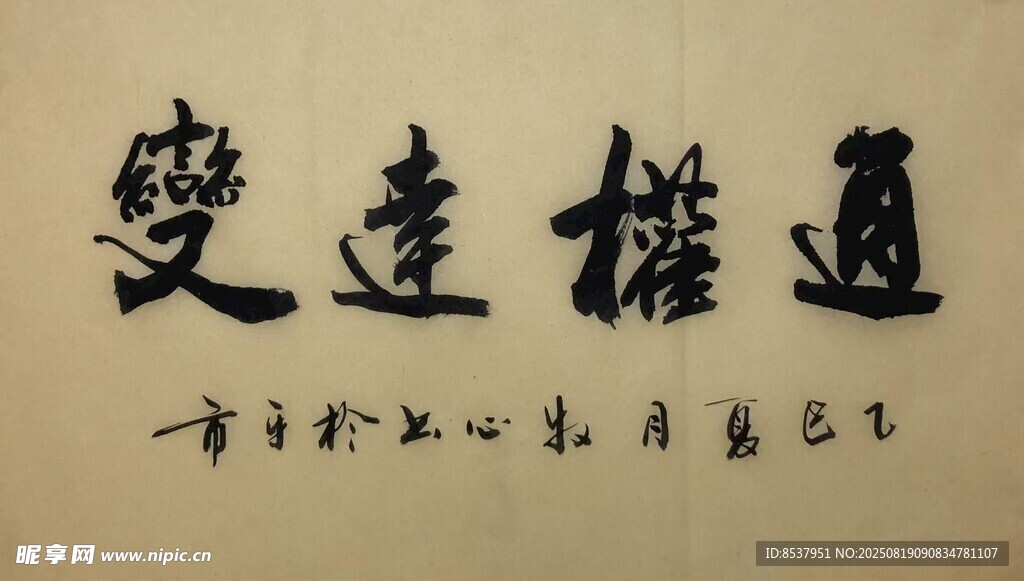 通權達變
乙巳夏月牧心書於平市
昵享网 www.nipic.cn
ID:8537951 NO:20250819090834781107